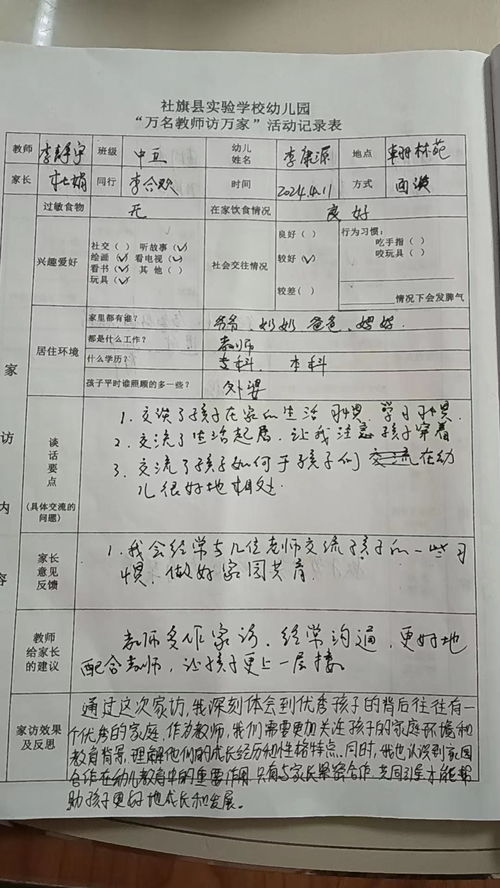 社旗县实验学校幼儿园
“万名教师访万家”活动记录表
教师 李静宇 班级 中五 幼儿姓名 李康源 地点 林苑
家长 杜娟 同行 李合欢 时间 2024.4.11 方式 面谈
过敏食物 无 在家饮食情况 良好
兴趣爱好 社交( ) 听故事(✓) 社会交往情况 良好( ) 行为习惯:
绘画(✓) 看电视(✓) 较好(✓) 吃手指( )
看书(✓) 其他( ) 咬玩具( )
玩具(✓) 较差( ) 情况下会发脾气
家访内容
居住环境 家里都有谁? 爷爷、奶奶 爸爸、妈妈.
都是什么工作? 教师
什么学历? 专科、本科
孩子平时谁照顾的多一些? 外婆
谈话要点
(具体交流的问题)
1. 交谈了孩子在家的生活习惯,学习习惯.
2. 交流了生活起居,让我注意孩子穿着
3. 交流了孩子如何于孩子们交流在幼
儿很好地相处.
家长意见反馈
1. 我会经常与几位老师交流孩子的一些习
惯,做好家园共育.
教师给家长的建议
教师多作家访、经常沟通,更好地
配合教师,让孩子更上一层楼。
家访效果及反思
通过这次家访,我深刻体会到优秀孩子的背后往往有一
个优秀的家庭.作为教师,我们需要更加关注孩子的家庭环境和
教育背景,理解他们的成长经历和性格特点.同时,我也认识到家园
合作在幼儿教育中的重要作用.只有与家长紧密合作,共同引导才能帮
助孩子更好地成长和发展。